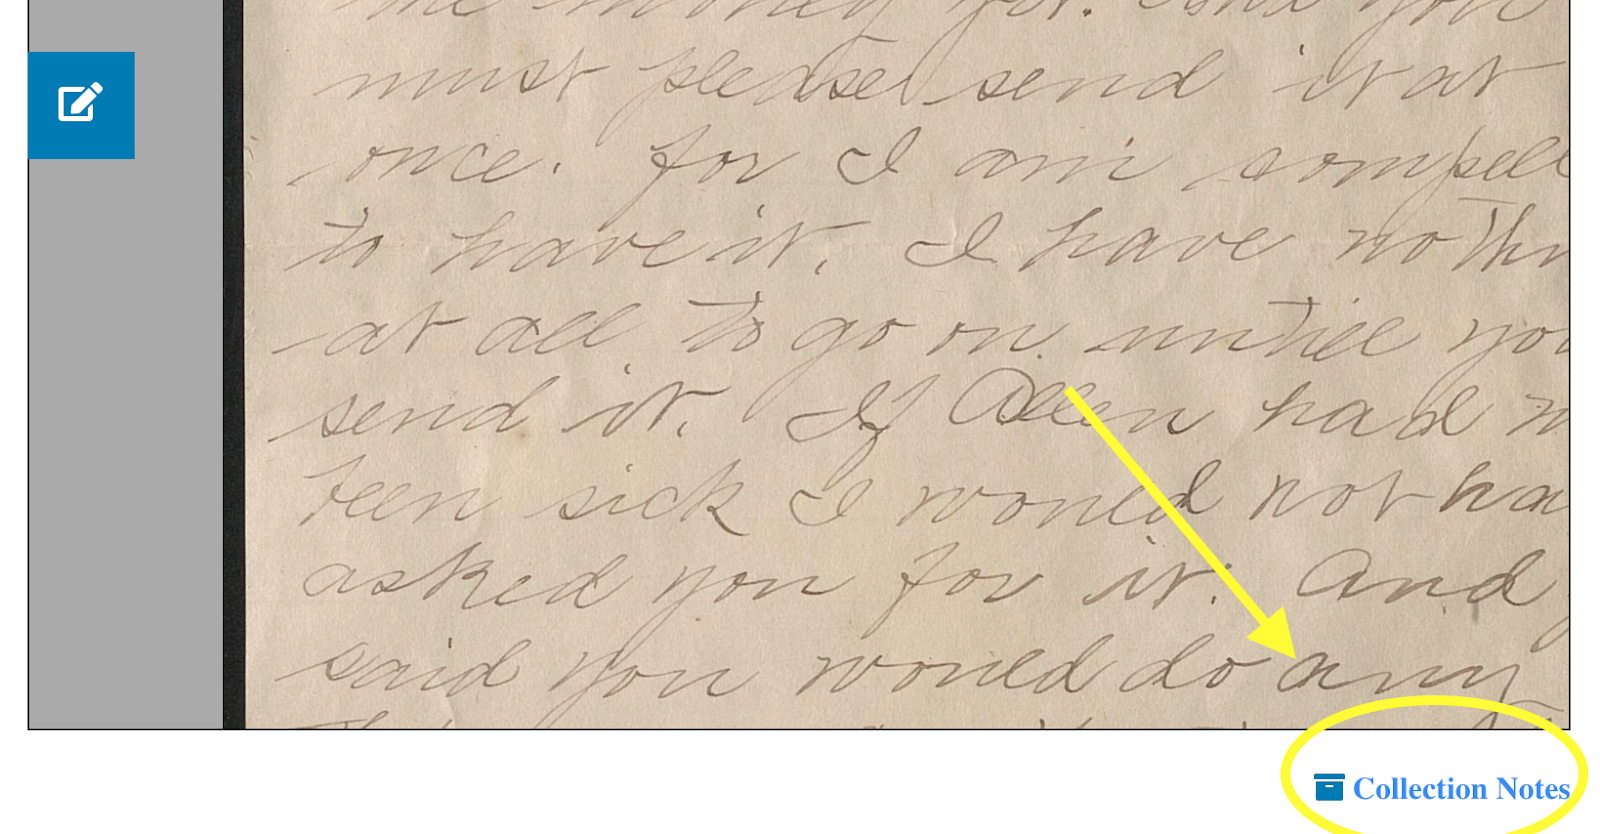 the money for. And you
must please send it at
once. for I am compell
to have it. I have no thn
at all to go on untill you
send it. If Allen had n
been sick I would not ha
asked you for it. And
said you would do any
Collection Notes